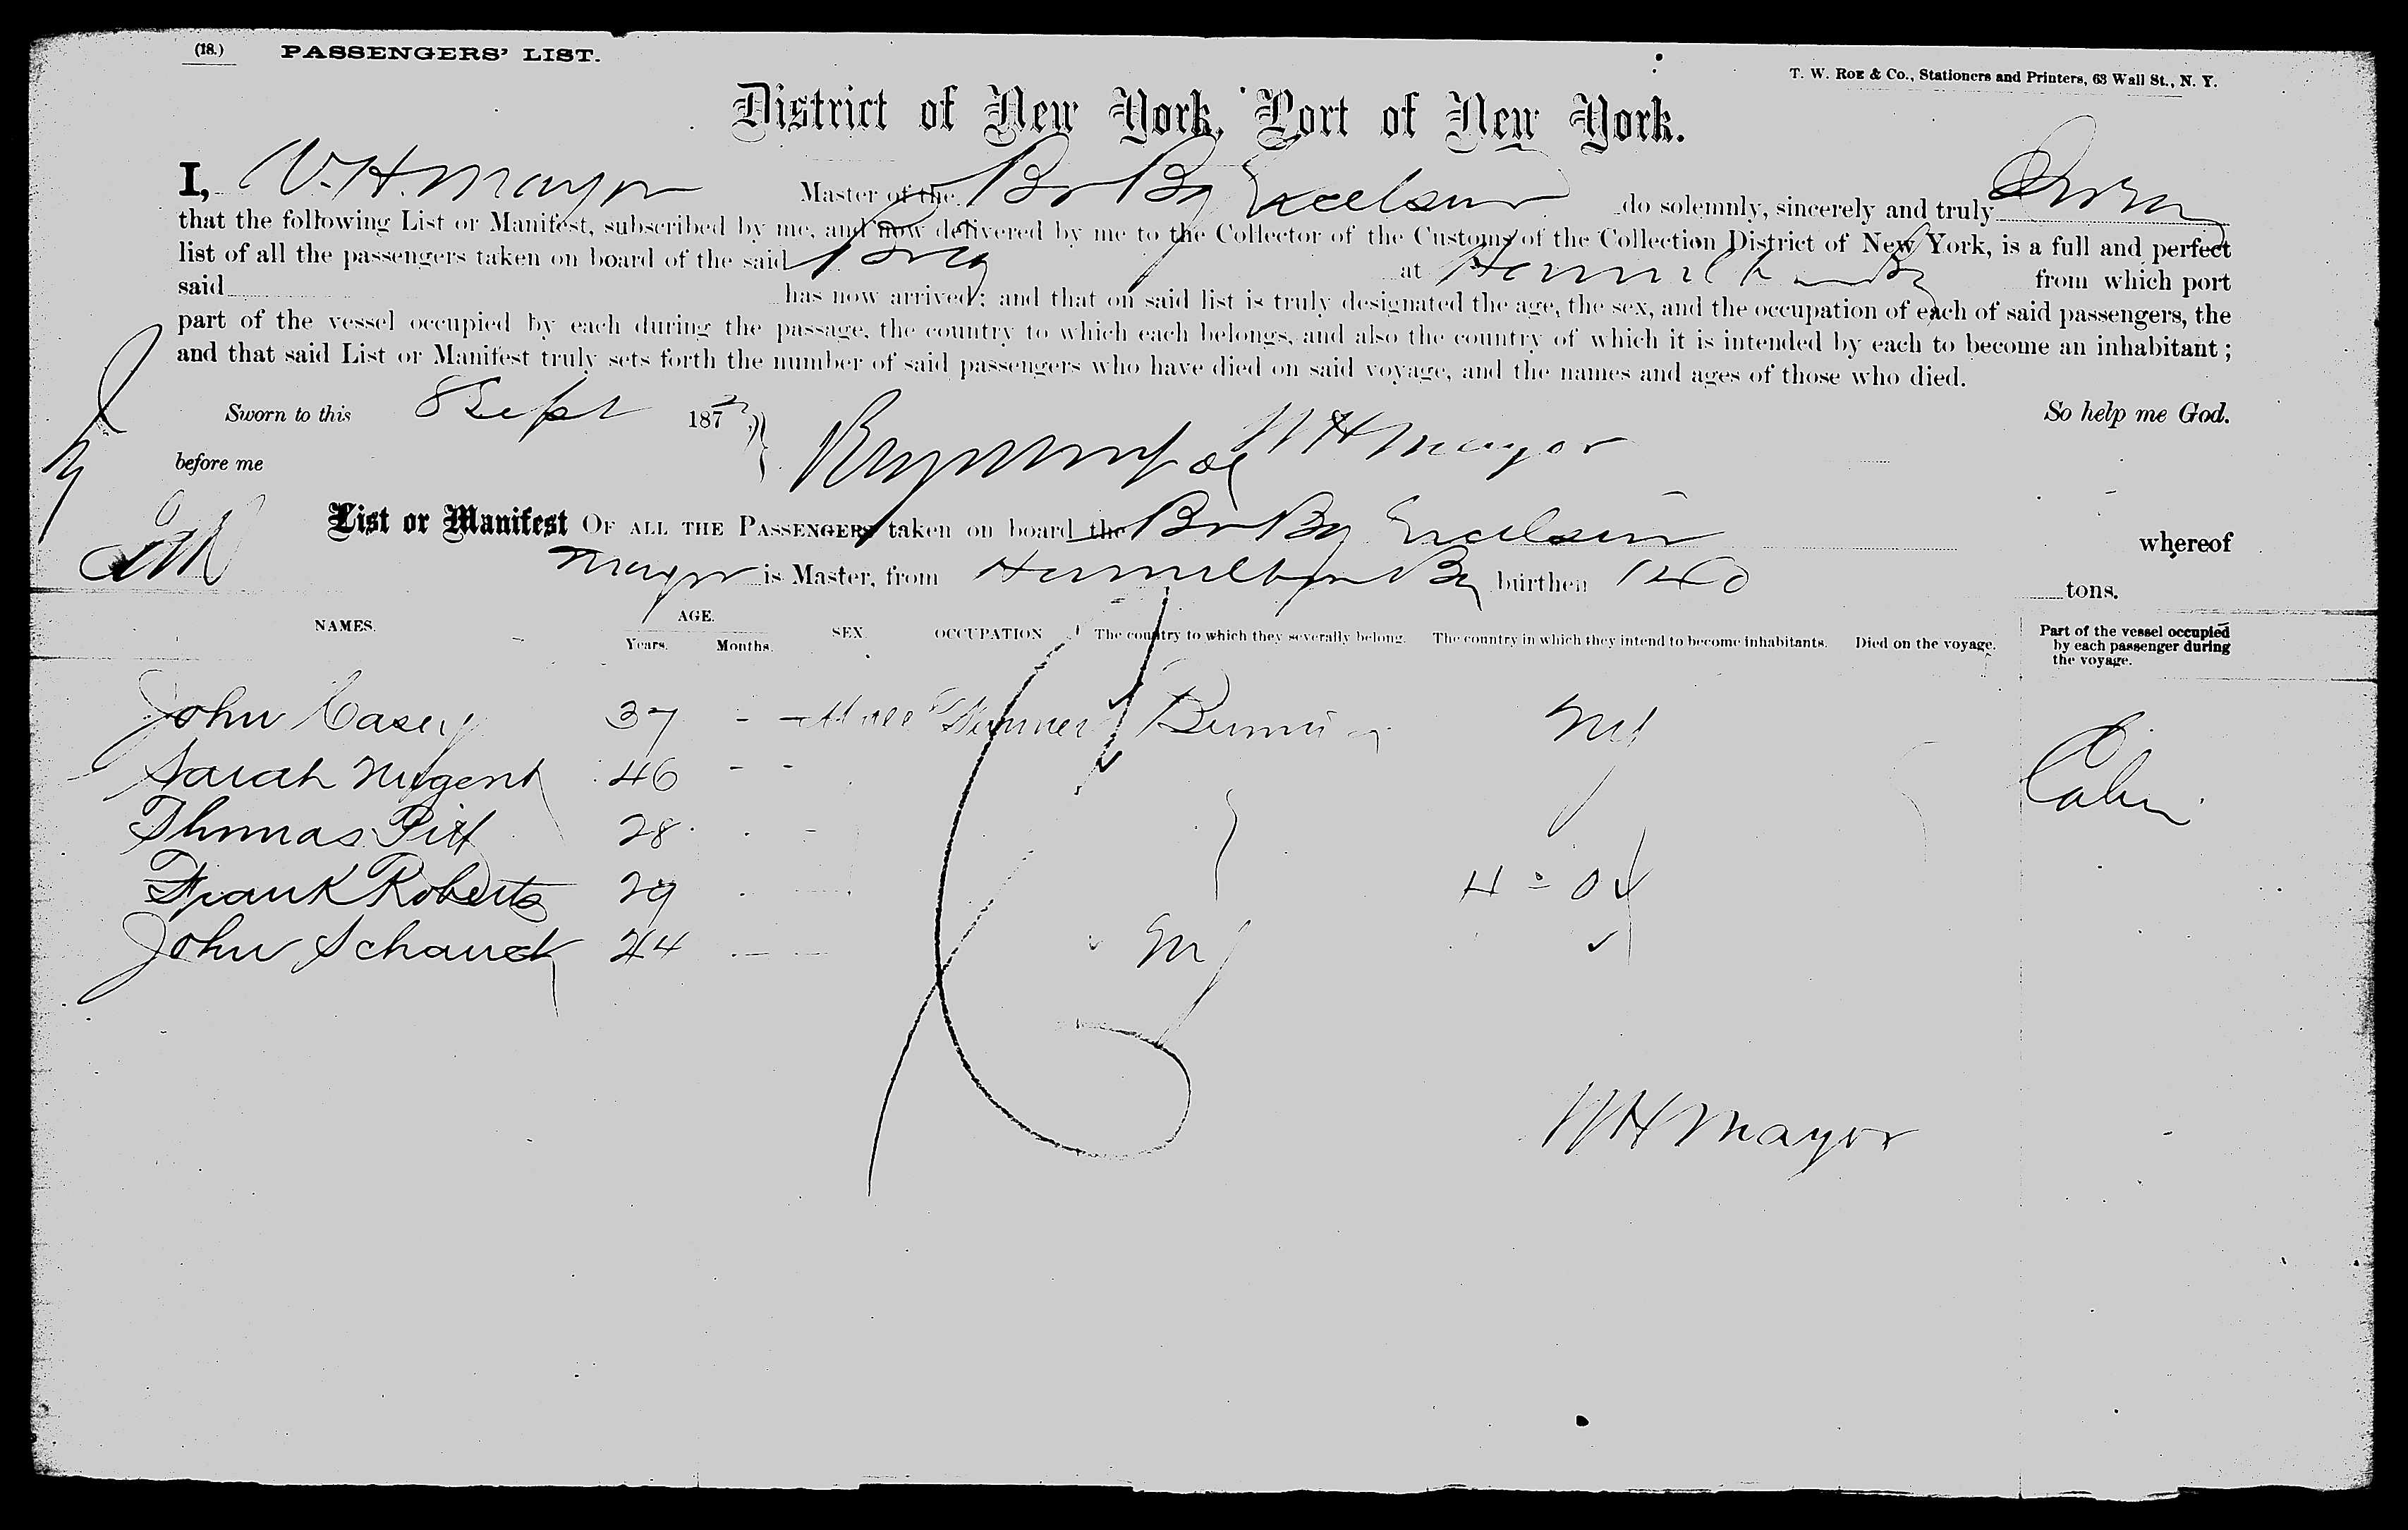 (18.) PASSENGERS' LIST.
T. W. ROE & Co., Stationers and Printers, 63 Wall St., N. Y.
District of New York, Port of New York.
I, W. H. Mayor Master of the Br Bg Excelsior do solemnly, sincerely and truly Swear
that the following List or Manifest, subscribed by me, and now delivered by me to the Collector of the Customs of the Collection District of New York, is a full and perfect
list of all the passengers taken on board of the said Brig at from which port
said has now arrived; and that on said list is truly designated the age, the sex, and the occupation of each of said passengers, the
part of the vessel occupied by each during the passage, the country to which each belongs, and also the country of which it is intended by each to become an inhabitant;
and that said List or Manifest truly sets forth the number of said passengers who have died on said voyage, and the names and ages of those who died.
Sworn to this 8 Sept 187 So help me God.
before me W H Mayor
List or Manifest OF ALL THE PASSENGERS taken on board the Br Bg Excelsior whereof
Mayor is Master, from Hamilton burthen tons.
NAMES. AGE. Years. Months. SEX. OCCUPATION The country to which they severally belong. The country in which they intend to become inhabitants. Died on the voyage. Part of the vessel occupied by each passenger during the voyage.
John Casey 37 - - Male
Sarah Nugent 46 - - Cabin
Thomas Pitt 28
Frank Roberts 29
John Schauck 24
W H Mayor